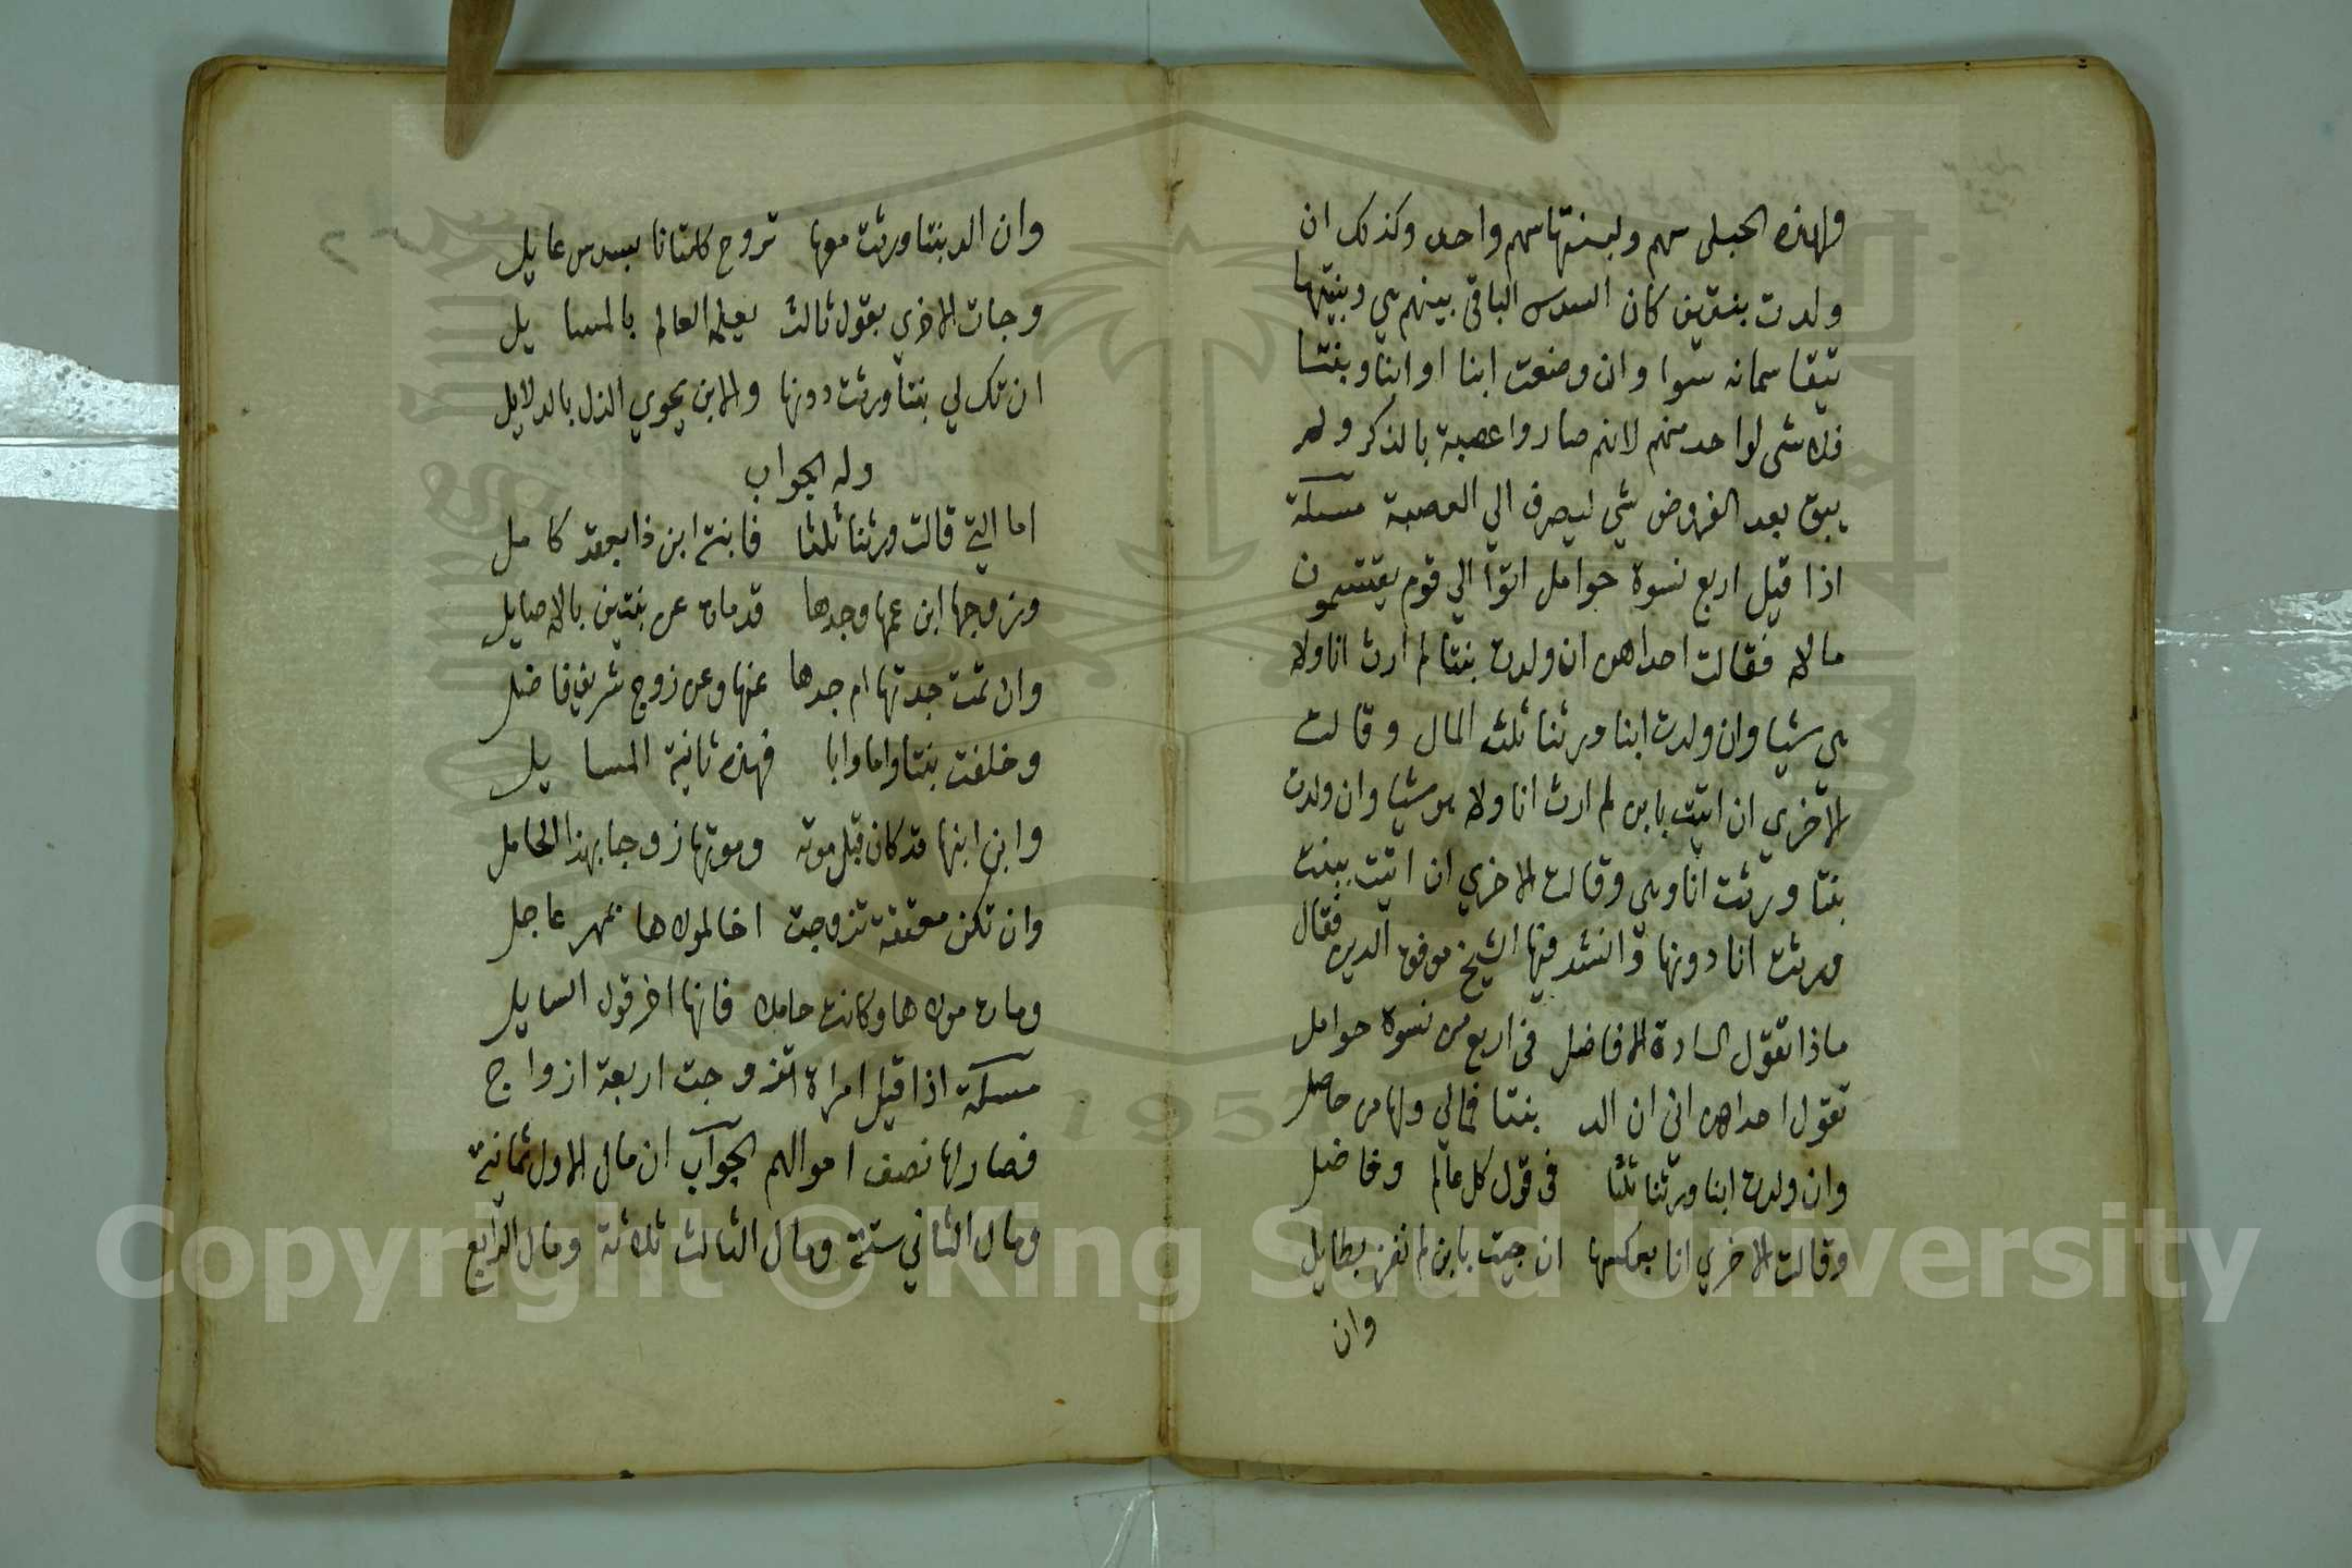 ولهذه الحبلى سهم ولبنتها سهم واحد وكذلك ان
ولدت بنتين كان السدس الباقي بينهم هي وبنتيها
تتقاسمانه سوا وان وضعت ابنا او ابنا وبنتا
فلا شى لواحد منهم لانهم صاروا عصبة بالذكر ولم
يبق بعد الفروض شي ليصرف الي العصبة مسئلة
اذا قيل اربع نسوة حوامل اتوا الي قوم يقتسمون
مالا فقالت احداهن ان ولدت بنتا لم ارث انا ولا
هي شيا وان ولدت ابنا ورثنا ثلث المال وقالت
الاخري ان اتيت بابن لم ارث انا ولا هو شيا وان ولدت
بنتا ورثت انا وهي وقالت الاخري ان اتيت ببنت
ورثت انا دونها وانشد فيها الشيخ موفق الدين فقال
ماذا تقول السادة الافاضل في اربع من نسوة حوامل
تقول احداهن اني ان الد بنتا فمالي ولها من حاصل
وان ولدت ابنا ورثنا ثلثا في قول كل عالم وفاضل
وقالت الاخري انا بعكسها ان جيت بابن لم نفز بطايل
وان
وان الد بنتا ورثت معها تروح كلتانا بسدس عايل
وجات الاخري بقول ثالث يعلمه العالم بالمسايل
ان تك لي بنتا ورثت دونها والابن يحوي الذل بالدلايل
وله الجواب
اما التي قالت ورثنا ثلثا فابنة ابن ذا بعقد كامل
وزوجها ابن عمها وجدها قد مات عن بنتين بالاصايل
وان تمت جدتها ام جدها عنها وعن زوج شريف فاضل
وخلفت بنتا واما وابا فهذه ثانية المسايل
وابن ابنها قد كان قبل موته وموتها زوجا بهذا الحامل
وان تكن معتقة تزوجت اخا لمولاها بمهر عاجل
ومات مولاها وكانت حاملا فانها اخر قول السايل
مسئلة اذا قيل امراة تزوجت اربعة ازواج
فصار لها نصف اموالهم الجواب ان مال الاول ثمانية
ومال الثاني ستة ومال الثالث ثلاثة ومال الرابع
Copyright © King Saud University
1957